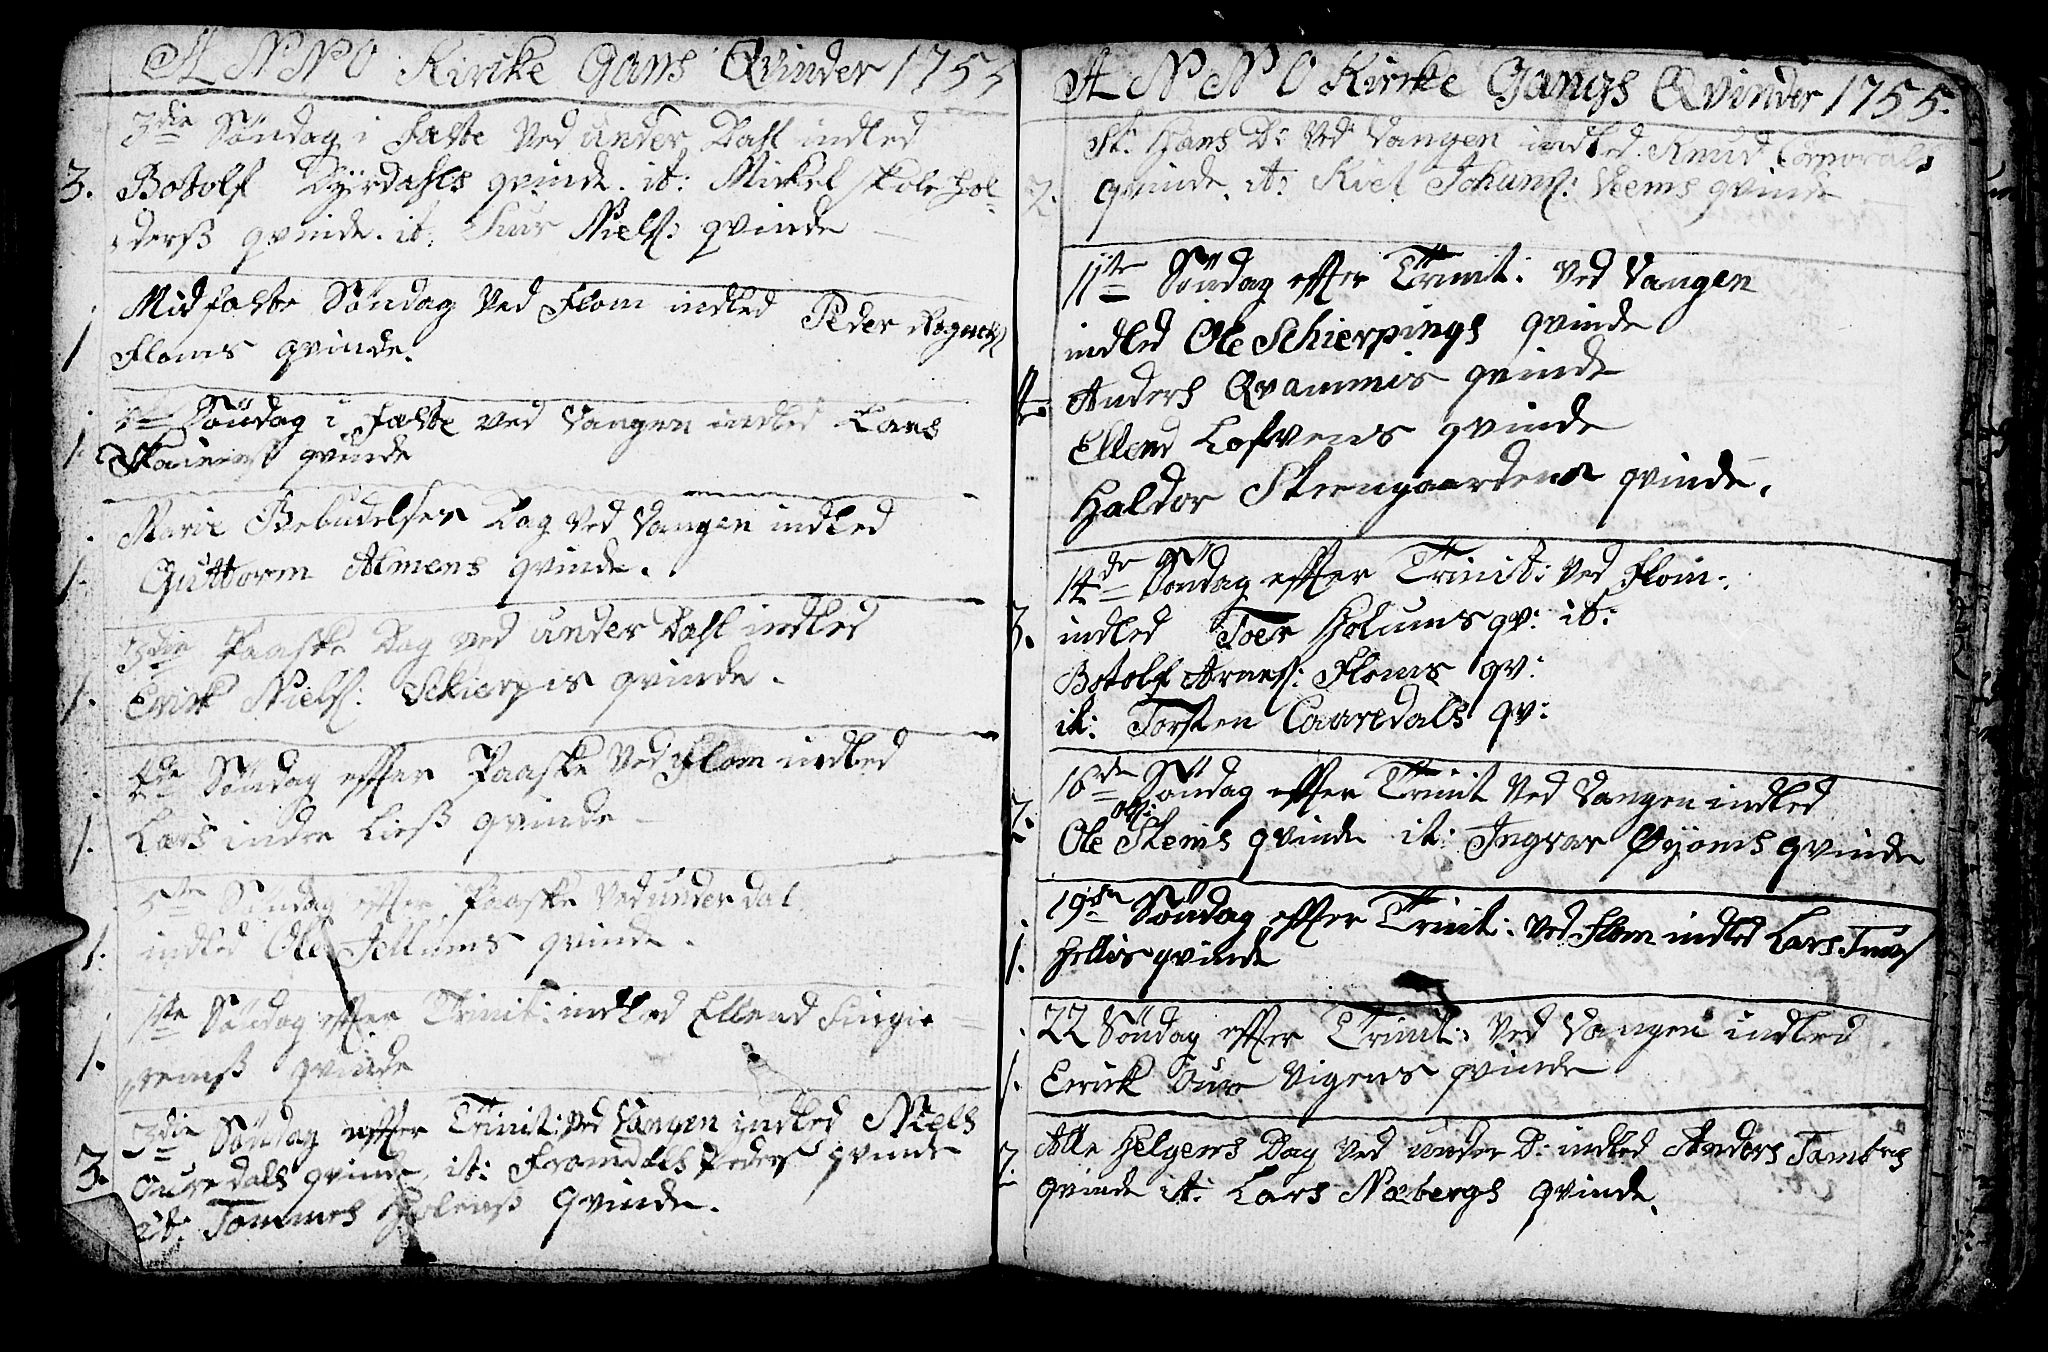 ANNO Kircke Gans Qvinder 1755
3die Søndag i Faste ved under Dahl indled
3. Botolf Dyrdahls qvinde. it: Mickel skolehol-
ders qvinde. it: Siur Niels: qvinde
Midfaste Søndag ved Flom indled Peder
1 Floms qvinde.
Søndag i Faste ved Vangen indled Lars
1. qvinde
Mariæ Bebudelses Dag ved Vangen indled
1. Guttorm Almens qvinde.
3die Paaske Dag ved under Dahl indled
1. Erick Niels: Schierpis qvinde.
4de Søndag effter Paaske ved Flom indled
1. Lars indre Lies qvinde
5te Søndag effter Paaske ved underdal
1. indled Ole qvinde.
1ste Søndag effter Trinit: indled Ellend
1. qvinde
3die Søndag effter Trinit: ved Vangen indled Niels
3. Ouredals qvinde, it: Peders qvinde
it: Tommes Holens qvinde.
ANNO Kircke Gangs Qvinder 1755.
St: Hans D: ved Vangen indled Knud Corporals
2. qvinde. it: qvinde
11te Søndag effter Trinit: ved Vangen
indled Ole Schierpings qvinde
4. Anders Qvammes qvinde
Ellend Lofvens qvinde
Haldor Steengaardens qvinde.
14de Søndag effter Trinit: ved Flom.
3. indled Toer Holums qv: it:
Botolf Arnes: Floms qv:
it: Torsten Caaredals qv:
16de Søndag effter Trinit ved Vangen indled
2. Ole Ols: Stems qvinde it: Ingvar Øyoms qvinde
19de Søndag effter Trinit: ved Flom indled Lars
1. qvinde
22 Søndag effter Trinit: ved Vangen indled
1. Erick Vigens qvinde
Alle Helgens Dag ved under D: indled Anders
2. qvinde it: Lars Næbergs qvinde.